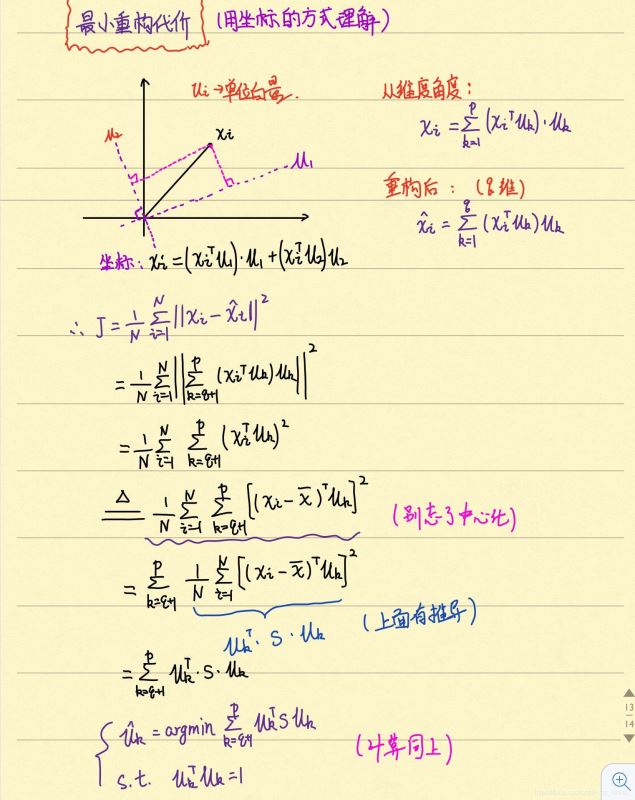 最小重构代价 (用坐标的方式理解)
u_i → 单位向量.
从维度角度:
x_i = \sum_{k=1}^{p} (x_i^T u_k) · u_k
u_2
x_i
u_1
重构后: (q维)
\hat{x}_i = \sum_{k=1}^{q} (x_i^T u_k) u_k
坐标: x_i = (x_i^T u_1) · u_1 + (x_i^T u_2) u_2
∴ J = \frac{1}{N} \sum_{i=1}^{N} ||x_i - \hat{x}_i||^2
= \frac{1}{N} \sum_{i=1}^{N} || \sum_{k=q+1}^{p} (x_i^T u_k) u_k ||^2
= \frac{1}{N} \sum_{i=1}^{N} \sum_{k=q+1}^{p} (x_i^T u_k)^2
\overset{Δ}{=} \frac{1}{N} \sum_{i=1}^{N} \sum_{k=q+1}^{p} [(x_i - \bar{x})^T u_k]^2 (别忘了中心化)
= \sum_{k=q+1}^{p} \frac{1}{N} \sum_{i=1}^{N} [(x_i - \bar{x})^T u_k]^2
u_k^T · S · u_k (上面有推导)
= \sum_{k=q+1}^{p} u_k^T · S · u_k
{ \hat{u}_k = argmin \sum_{k=q+1}^{p} u_k^T S u_k
s.t. u_k^T u_k = 1
(计算同上)
13
14